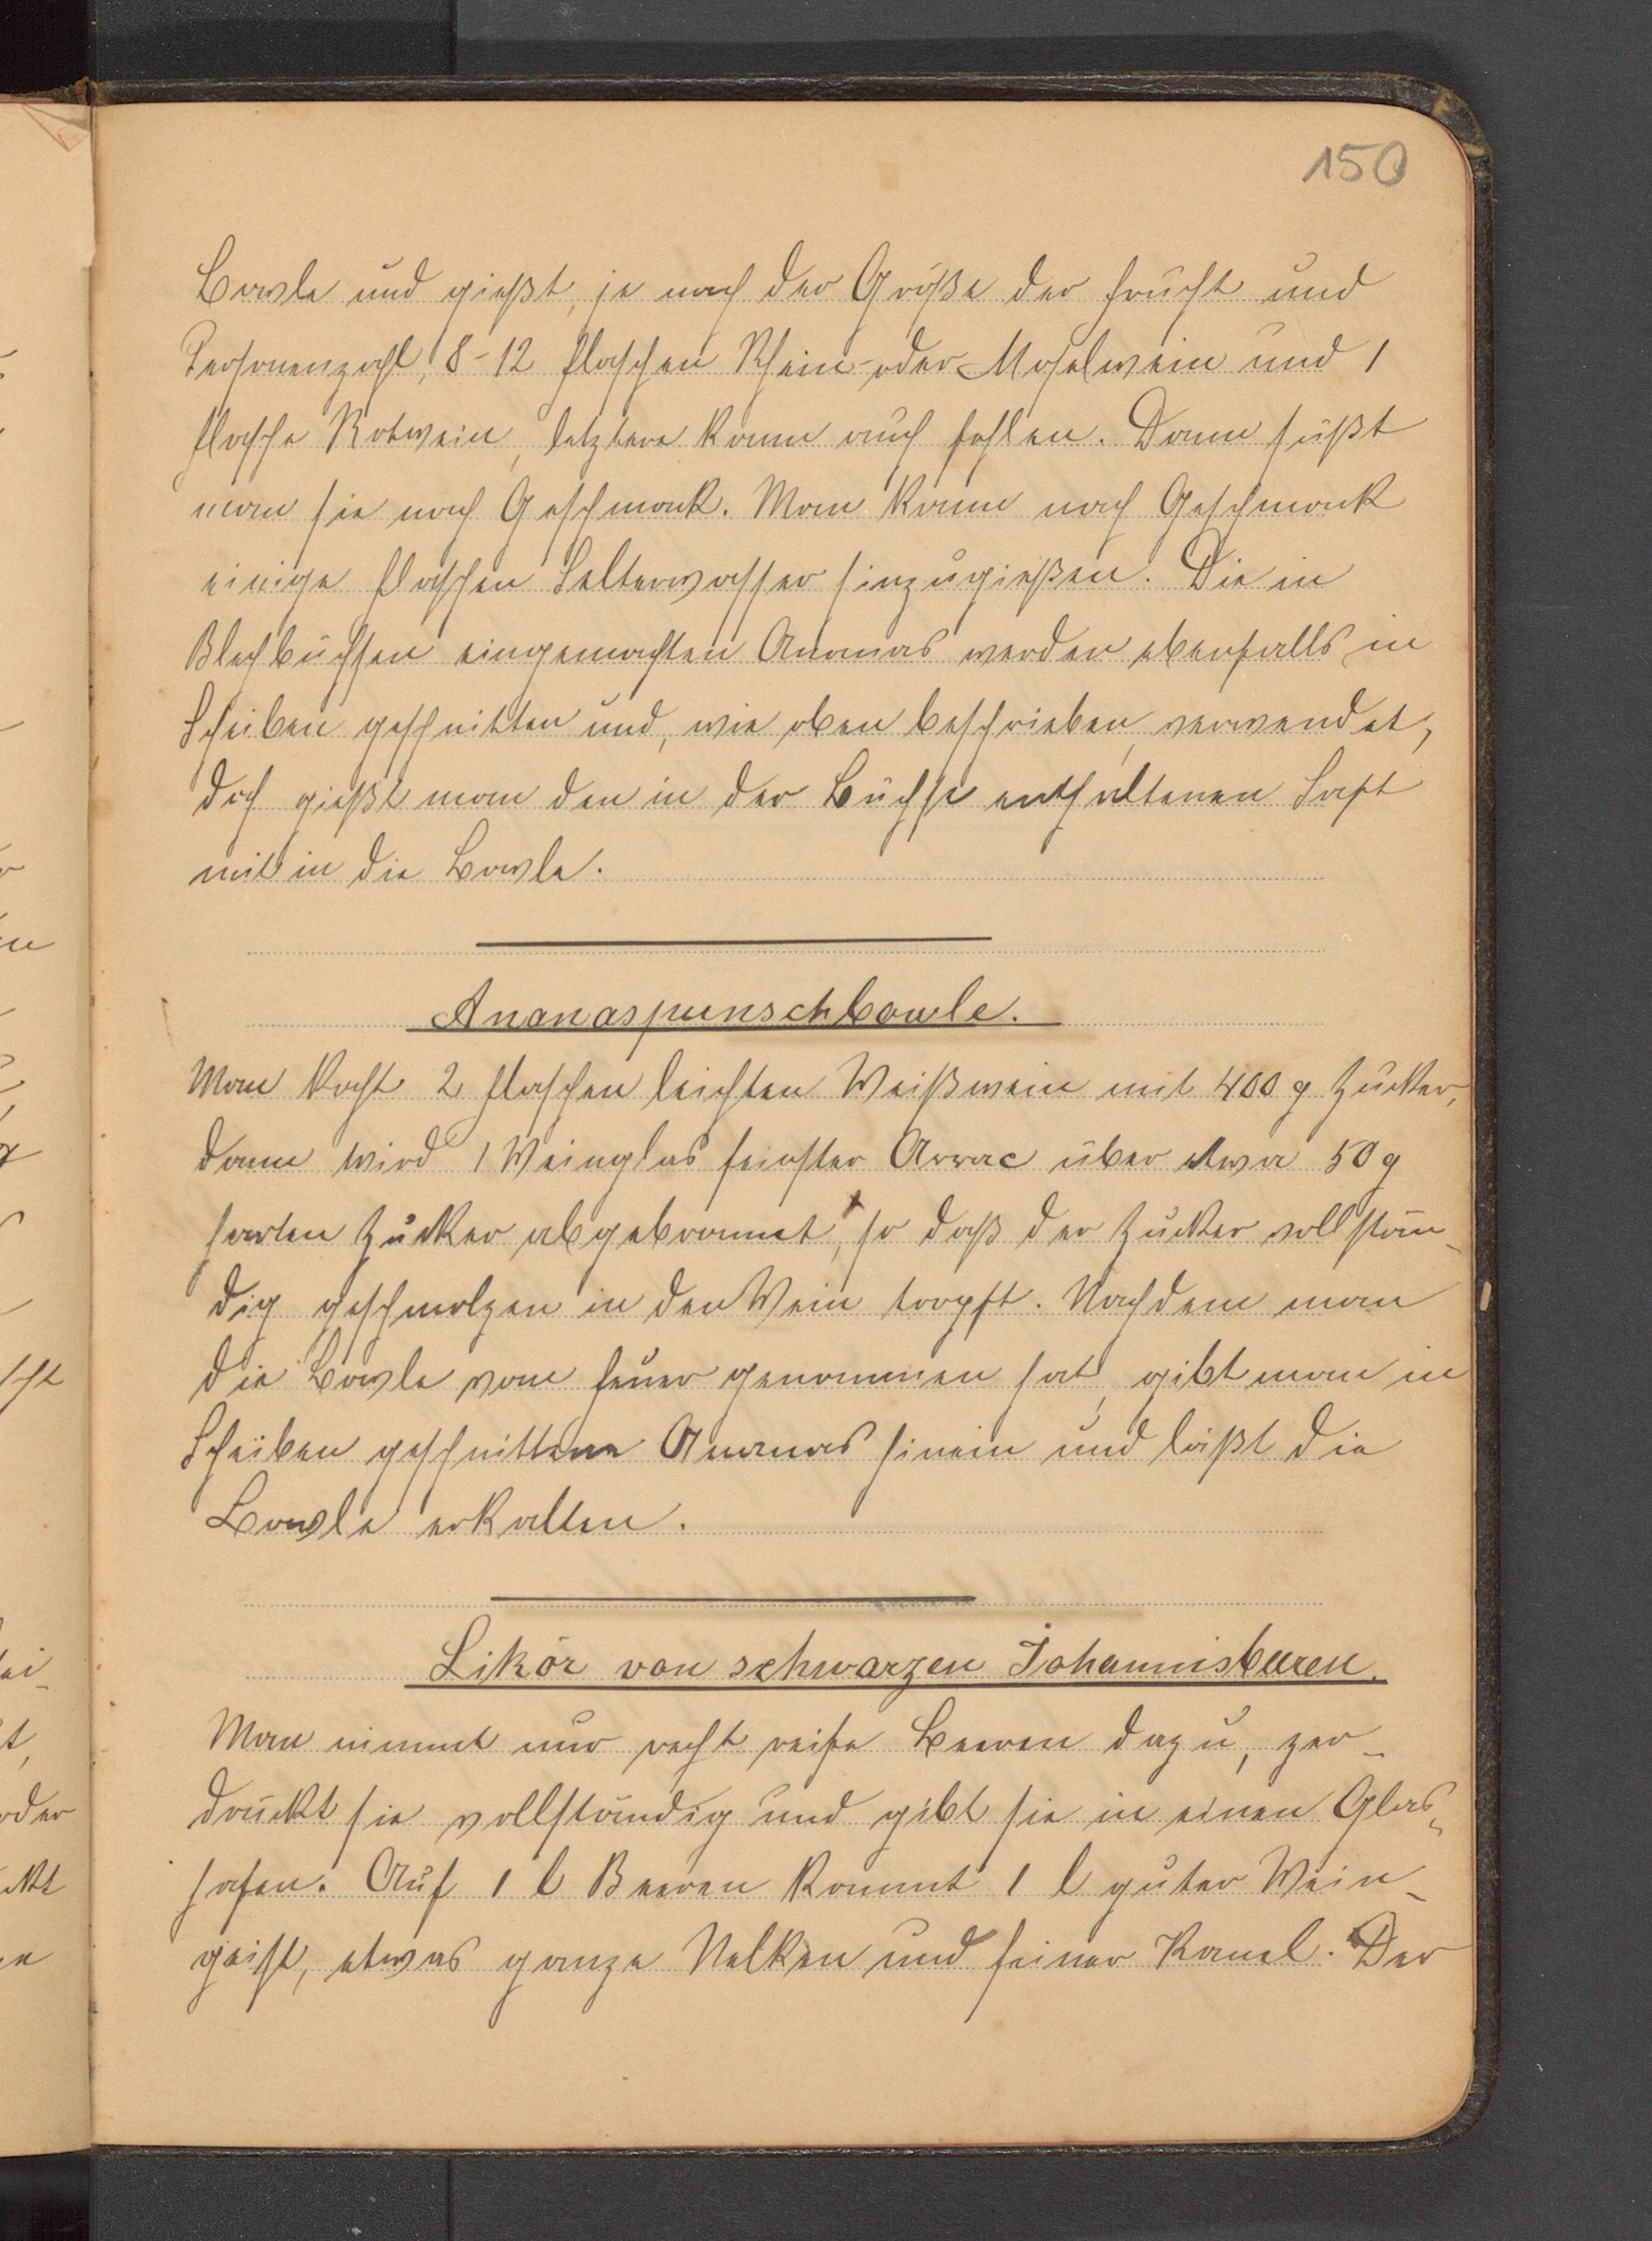 150
Bowle und gießt, je nach der Größe der Frucht und
Personenzahl, 8-12 Flaschen Rhein- oder Moselwein und 1
Flasche Rotwein, letztere kann auch fehlen. Dann süßt
man sie nach Geschmack. Man kann nach Geschmack
einige Flaschen Selterwasser hinzugießen. Die in
Blechbüchsen eingemachten Ananas werden ebenfalls in
Scheiben geschnitten und, wie oben beschrieben, verwendet,
doch gießt man den in der Büchse enthaltenen Saft
mit in die Bowle.
Ananaspunschbowle.
Man kocht 2 Flaschen leichten Weißwein mit 400 g Zucker,
dann wird 1 Weinglas feinster Arrac über etwa 50 g
harten Zucker abgebrannt, so daß der Zucker vollstän-
dig geschmolzen in den Wein tropft. Nachdem man
die Bowle vom Feuer genommen hat, gibt man in
Scheiben geschnittene Ananas hinein und läßt die
Bowle erkalten.
Likör von schwarzen Johannisbeeren.
Man nimmt nur recht reife Beeren dazu, zer-
drückt sie vollständig und gibt sie in einen Glas-
hafen. Auf 1 l Beeren kommt 1 l guter Wein-
geist, etwas ganze Nelken und feiner Kanel. Der